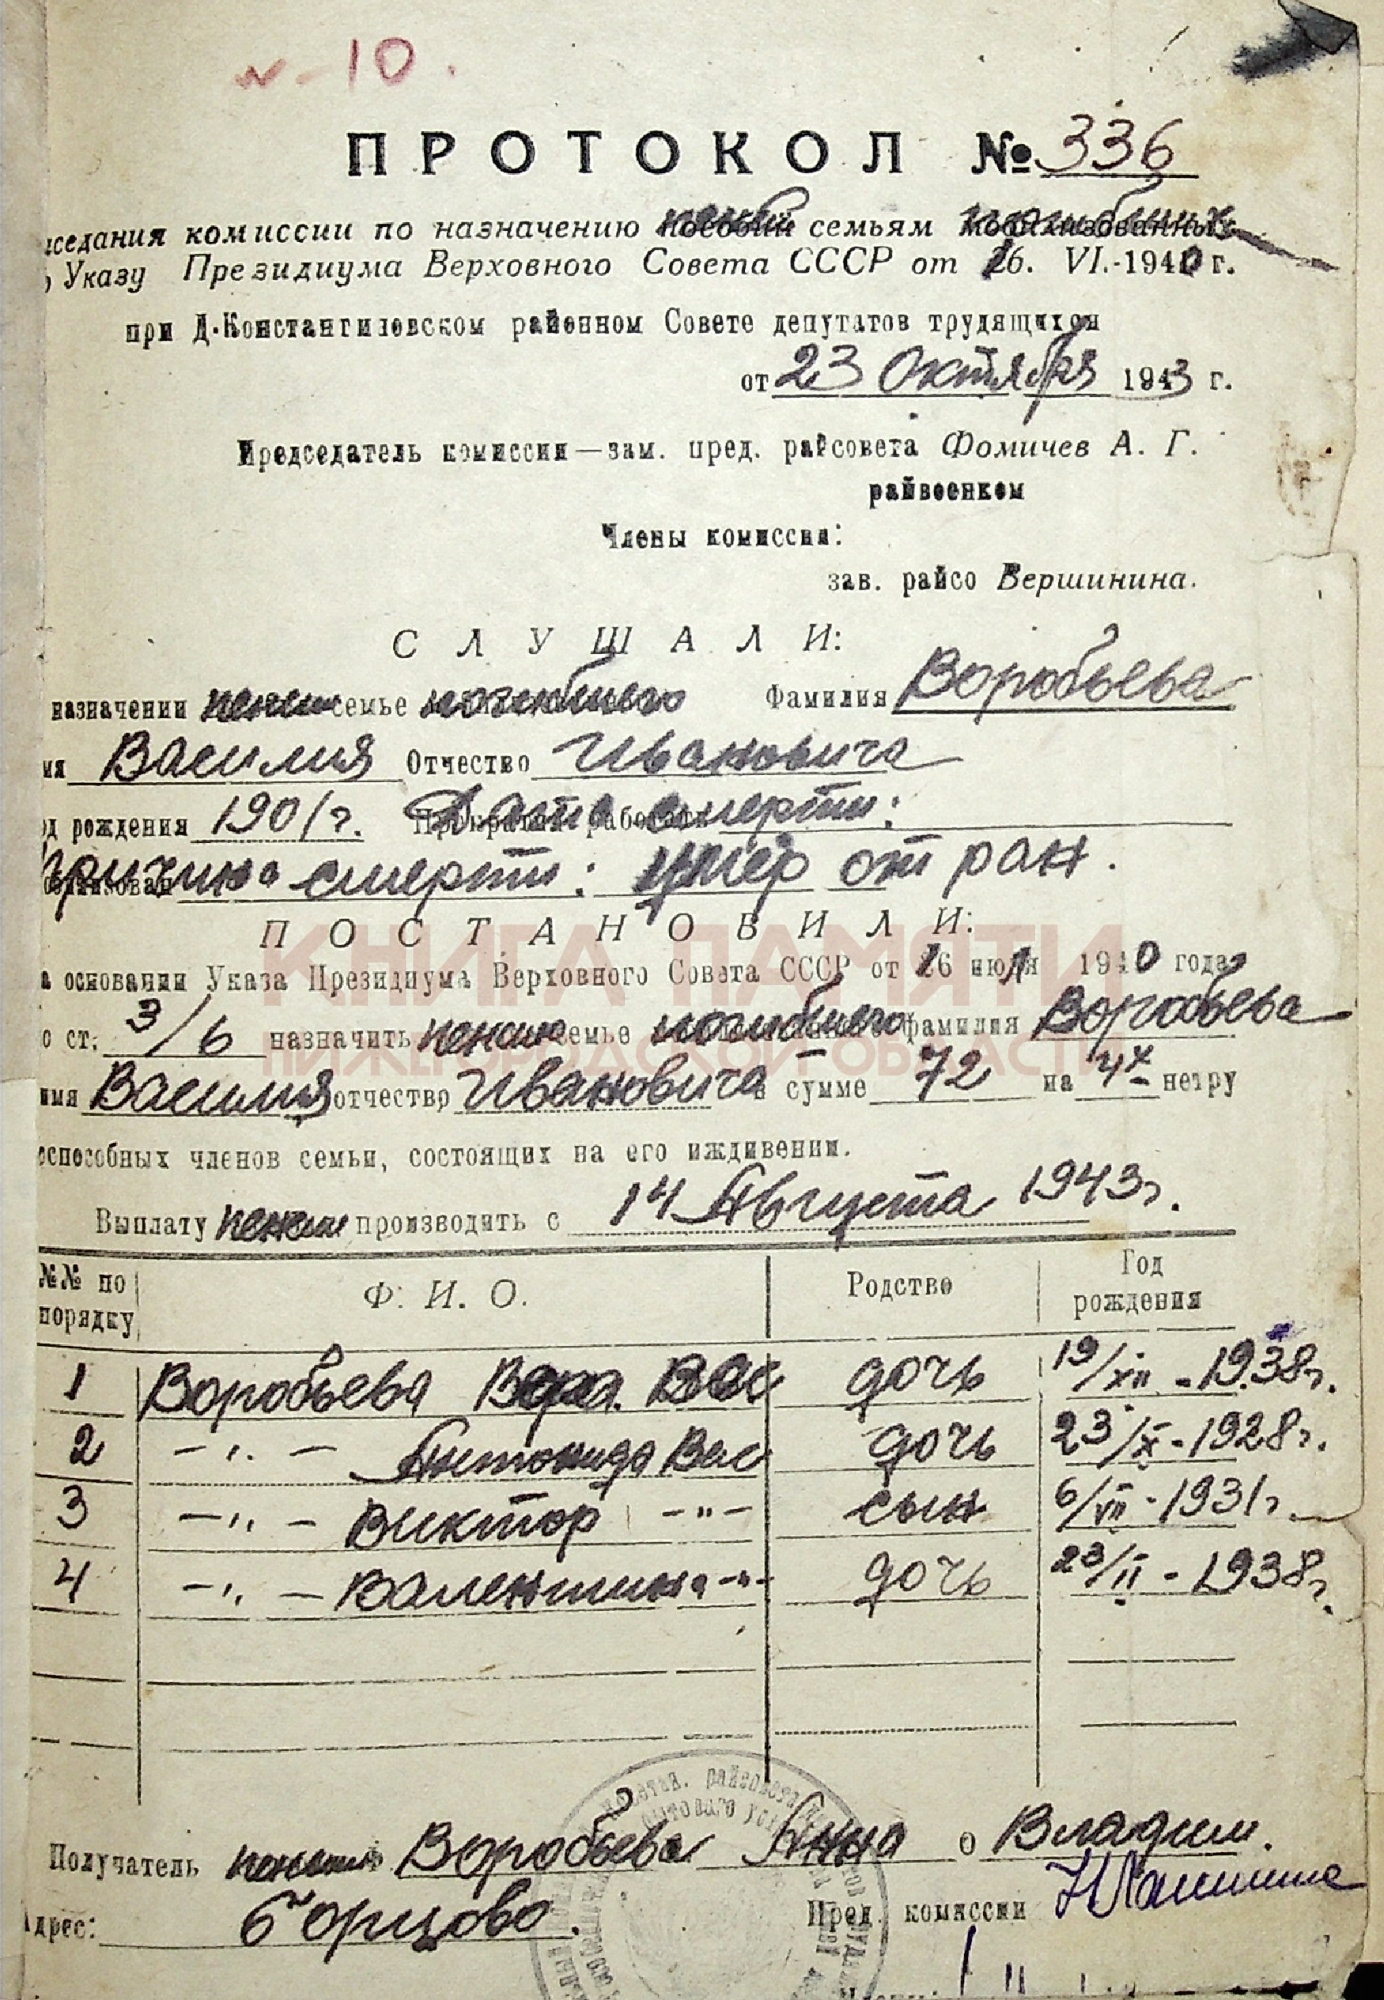 № 10.
ПРОТОКОЛ № 336
заседания комиссии по назначению пенсий семьям погибших
по Указу Президиума Верховного Совета СССР от 16. VI.-1940 г.
при Д-Константиновском районном Совете депутатов трудящихся
от 23 октября 1943 г.
Председатель комиссии—зам. пред. райсовета Фомичев А. Г.
райвоенком
Члены комиссии:
зав. райсо Вершинина.
СЛУШАЛИ:
назначении пенсии семье погибшего Фамилия Воробьева
мя Василия Отчество Ивановича
од рождения 1901 г. Дата смерти:
Причина смерти: умер от ран.
ПОСТАНОВИЛИ:
а основании Указа Президиума Верховного Совета СССР от 16 июля 1940 года,
о ст. 3/6 назначить пенсию семье погибшего фамилия Воробьева
имя Василия отчество Ивановича в сумме 72 на 4х нетру
оспособных членов семьи, состоящих на его иждивении.
Выплату пенсии производить с 14 Августа 1943г.
№№ по порядку Ф. И. О. Родство Год рождения
1 Воробьева Вера Вас дочь 19/XII - 1938г.
2 -"- Антонида Вас дочь 23/X - 1928г.
3 -"- Виктор -"- сын 6/VII - 1931г
4 -"- Валентина -"- дочь 23/II - 1938г.
Получатель пенсии Воробьева Анна о Владим.
Адрес: Борцово.
Пред. комиссии
КНИГА ПАМЯТИ
НИЖЕГОРОДСКОЙ ОБЛАСТИ